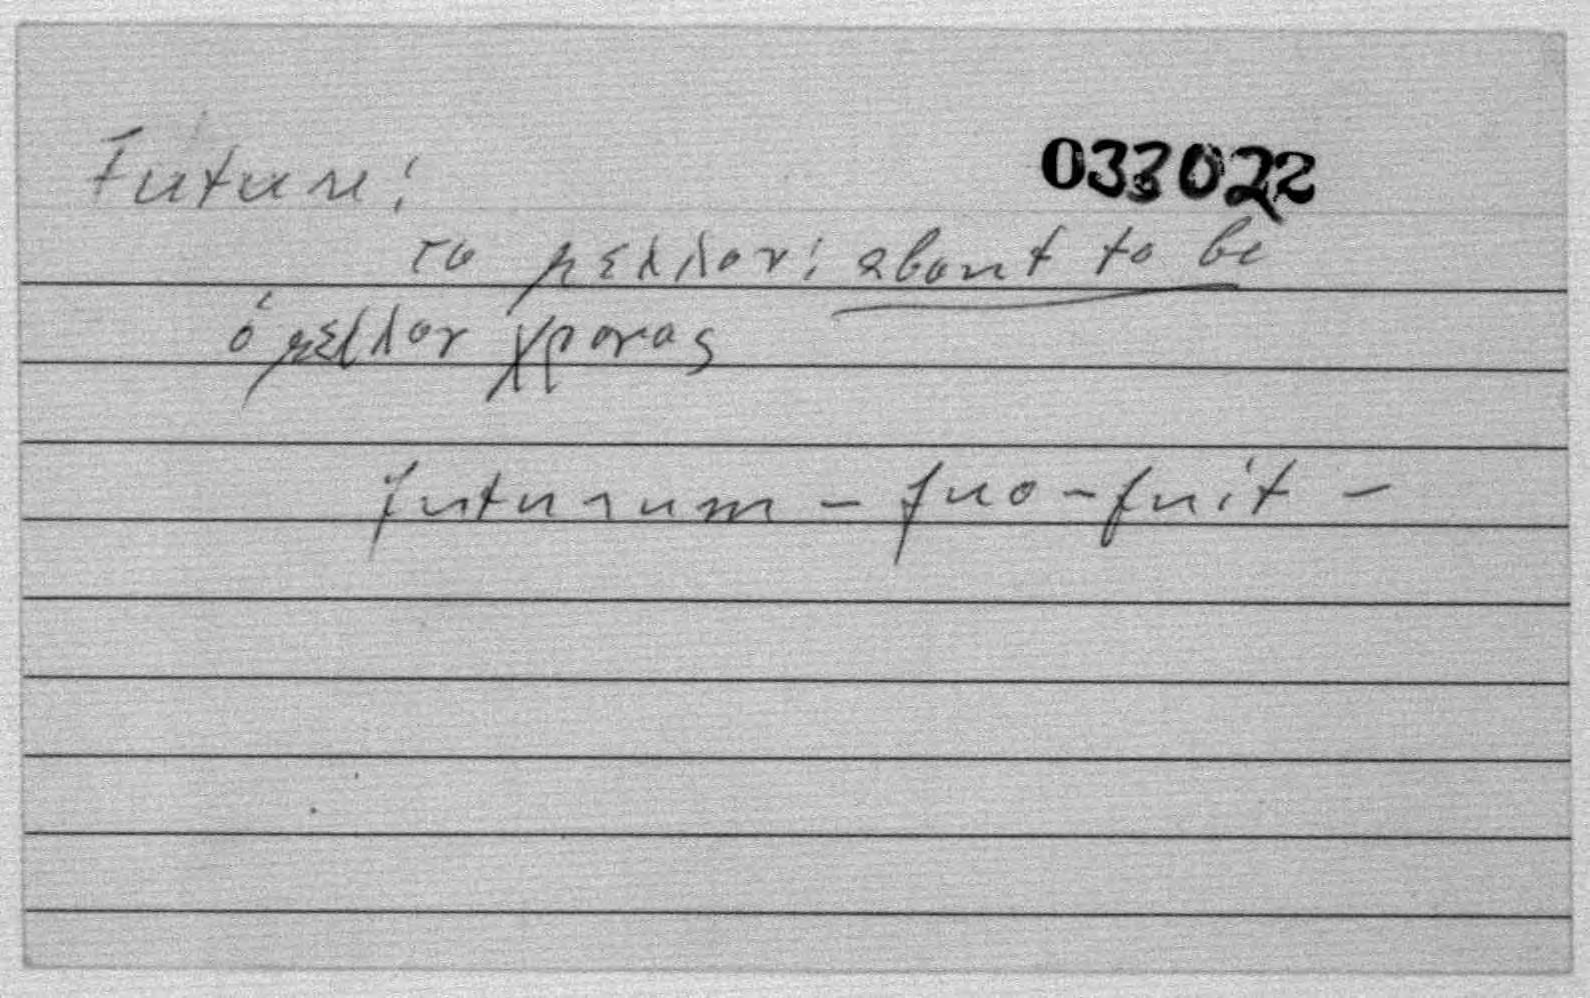 Future:
033022
το μελλον: about to be
ὁ μελλον χρονος
futurum – fuo – fuit –